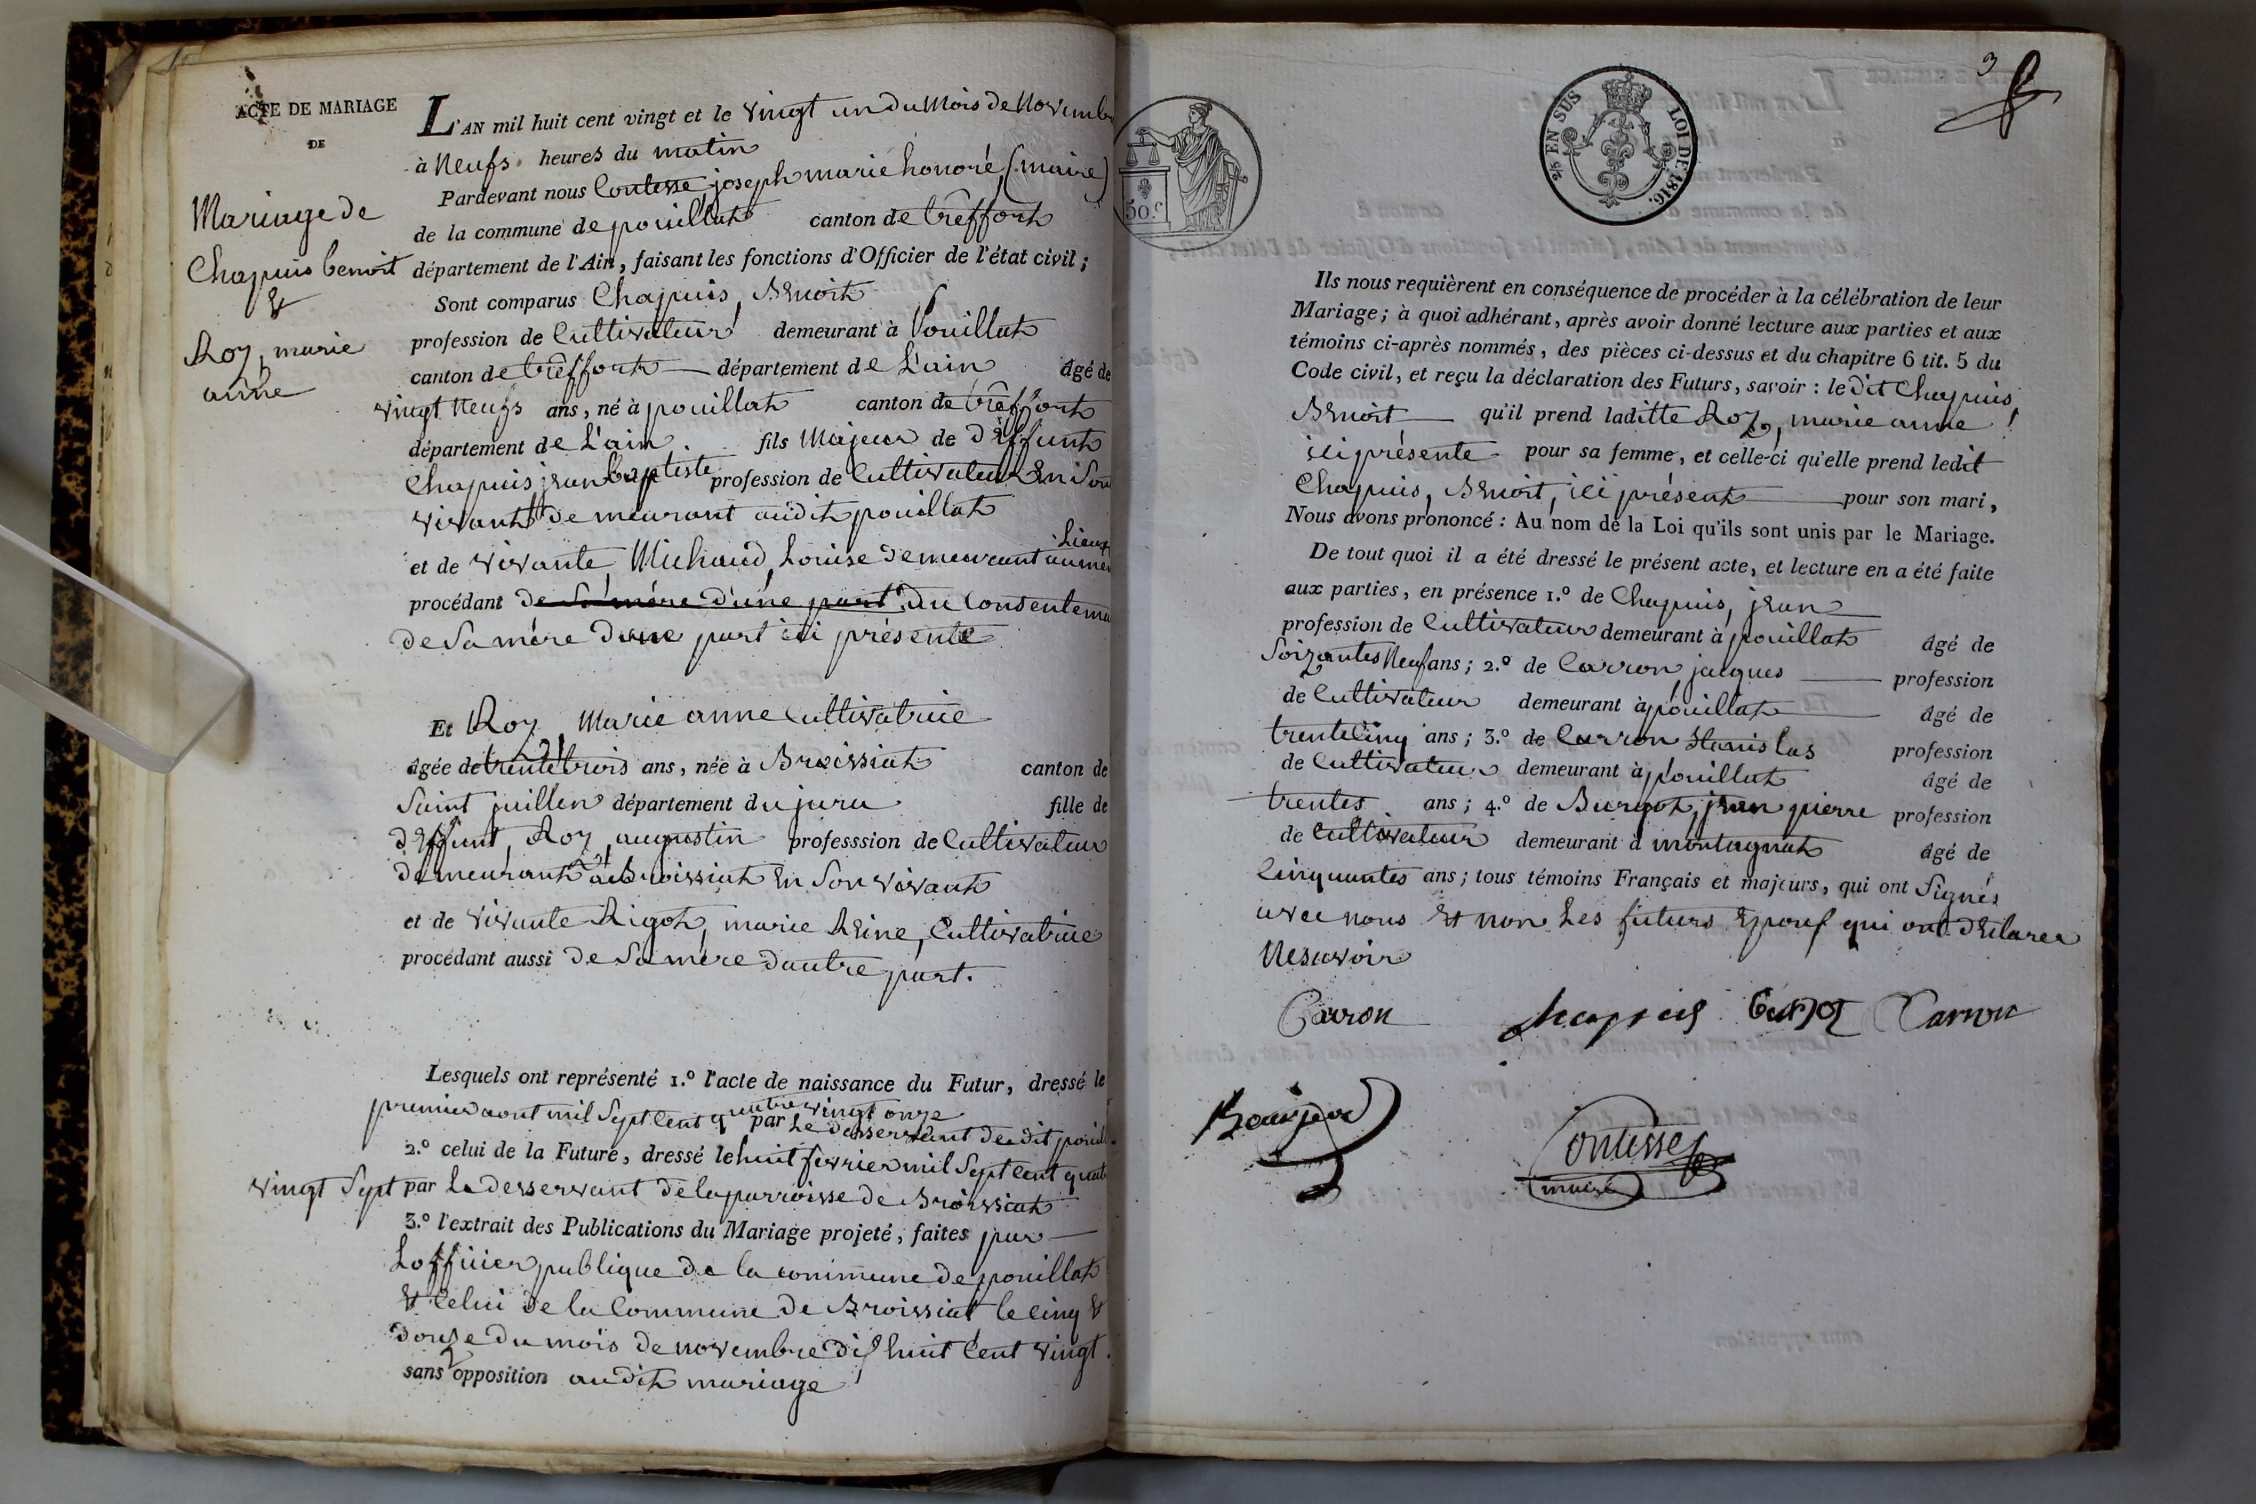 ACTE DE MARIAGE
DE
Mariage de
Chapuis benoit
&
Roy, marie
anne
L'AN mil huit cent vingt et le vingt un du Mois de Novembr
à Neufs heures du matin
Pardevant nous Contesse, joseph marie honoré, (maire)
de la commune de pouillat canton de trêffort
département de l'Ain, faisant les fonctions d'Officier de l'état civil;
Sont comparus Chapuis, Benoit
profession de Cultivateur demeurant à Pouillat
canton de trêffort département de L'ain âgé de
vingt neufs ans, né à pouillat canton de trêffort
département de L'ain. fils Majeur de déffunt
Chapuis jean baptiste profession de Cultivateur En Son
vivant demeurant audit pouillat
et de vivante Michaud, Louise demeurant au mem
Lieux
procédant de Sa mére d'une part. du Consentemen
de Sa mère dune part ici présente
Et Roy, Marie anne Cultivatrice
âgée de trente trois ans, née à Broissiat canton de
Saint juillen département du jura fille de
déffunt, Roy, augustin professsion de Cultivateur
demeurant à Broissiat En Son vivant
et de vivante Rigot, marie Reine, Cultivatrice
procédant aussi de Sa mére dautre part.
Lesquels ont représenté 1.º l'acte de naissance du Futur, dressé le
premier aout mil Sept Cent quatre vingt onze
par Le desservant dudit pouill
2.º celui de la Future, dressé le huit fevrier mil Sept Cent quatr
vingt Sept par Le desservant de la parroisse de Broissiat
3.º l'extrait des Publications du Mariage projeté, faites par
Lofficier publique de la commune de pouillat
& Celui de la Commune de Broissiat le cinq &
douze du mois de novembre dix huit Cent vingt.
sans opposition audit mariage
50.c
2/5 EN SUS LOI DE 1816.
3
Ils nous requièrent en conséquence de procéder à la célébration de leur
Mariage; à quoi adhérant, après avoir donné lecture aux parties et aux
témoins ci-après nommés, des pièces ci-dessus et du chapitre 6 tit. 5 du
Code civil, et reçu la déclaration des Futurs, savoir : le dit Chapuis,
Benoit qu'il prend laditte Roy, marie anne
ici présente pour sa femme, et celle-ci qu'elle prend ledit
Chapuis, Benoit, ici présent pour son mari,
Nous avons prononcé : Au nom de la Loi qu'ils sont unis par le Mariage.
De tout quoi il a été dressé le présent acte, et lecture en a été faite
aux parties, en présence 1.º de Chapuis, jean
profession de Cultivateur demeurant à pouillat âgé de
Soizantes Neuf ans; 2.º de Carron, jacques profession
de Cultivateur demeurant à pouillat âgé de
trente Cinq ans; 3.º de Carron Stanislas profession
de Cultivateur demeurant à pouillat âgé de
trentes ans; 4.º de Burgot, jean pierre profession
de Cultivateur demeurant à montagnat âgé de
Cinquantes ans; tous témoins Français et majeurs, qui ont Signés
avec nous & non Les futurs Epouf qui ont déclarer
Nesavoir
Carron Chapuis Burjot Carron
Contesse
maire